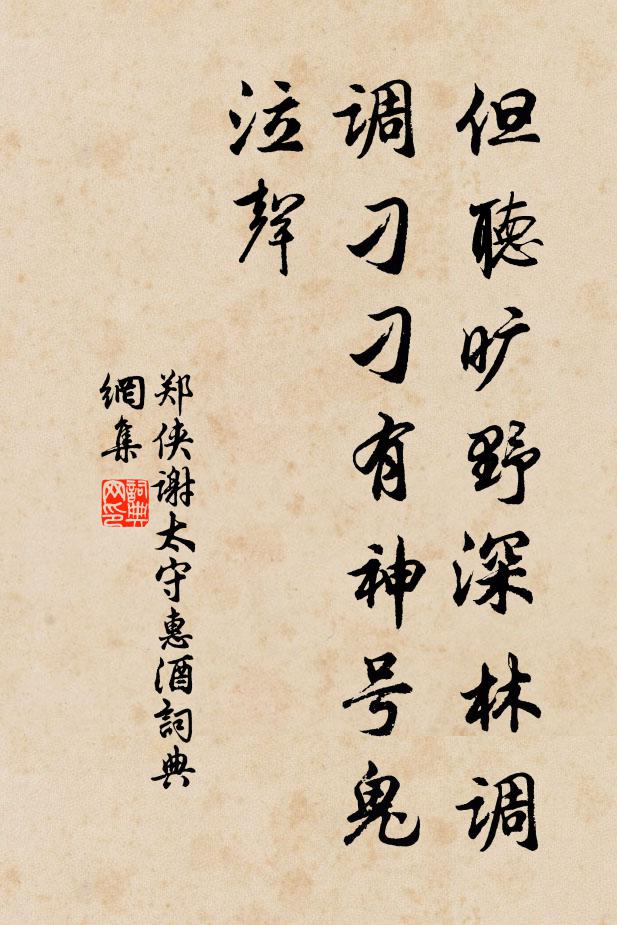 但聴旷野深林调
调刁刁有神号鬼
泣聲
郑侠谢太守惠酒詞典
網集
詞典
网印